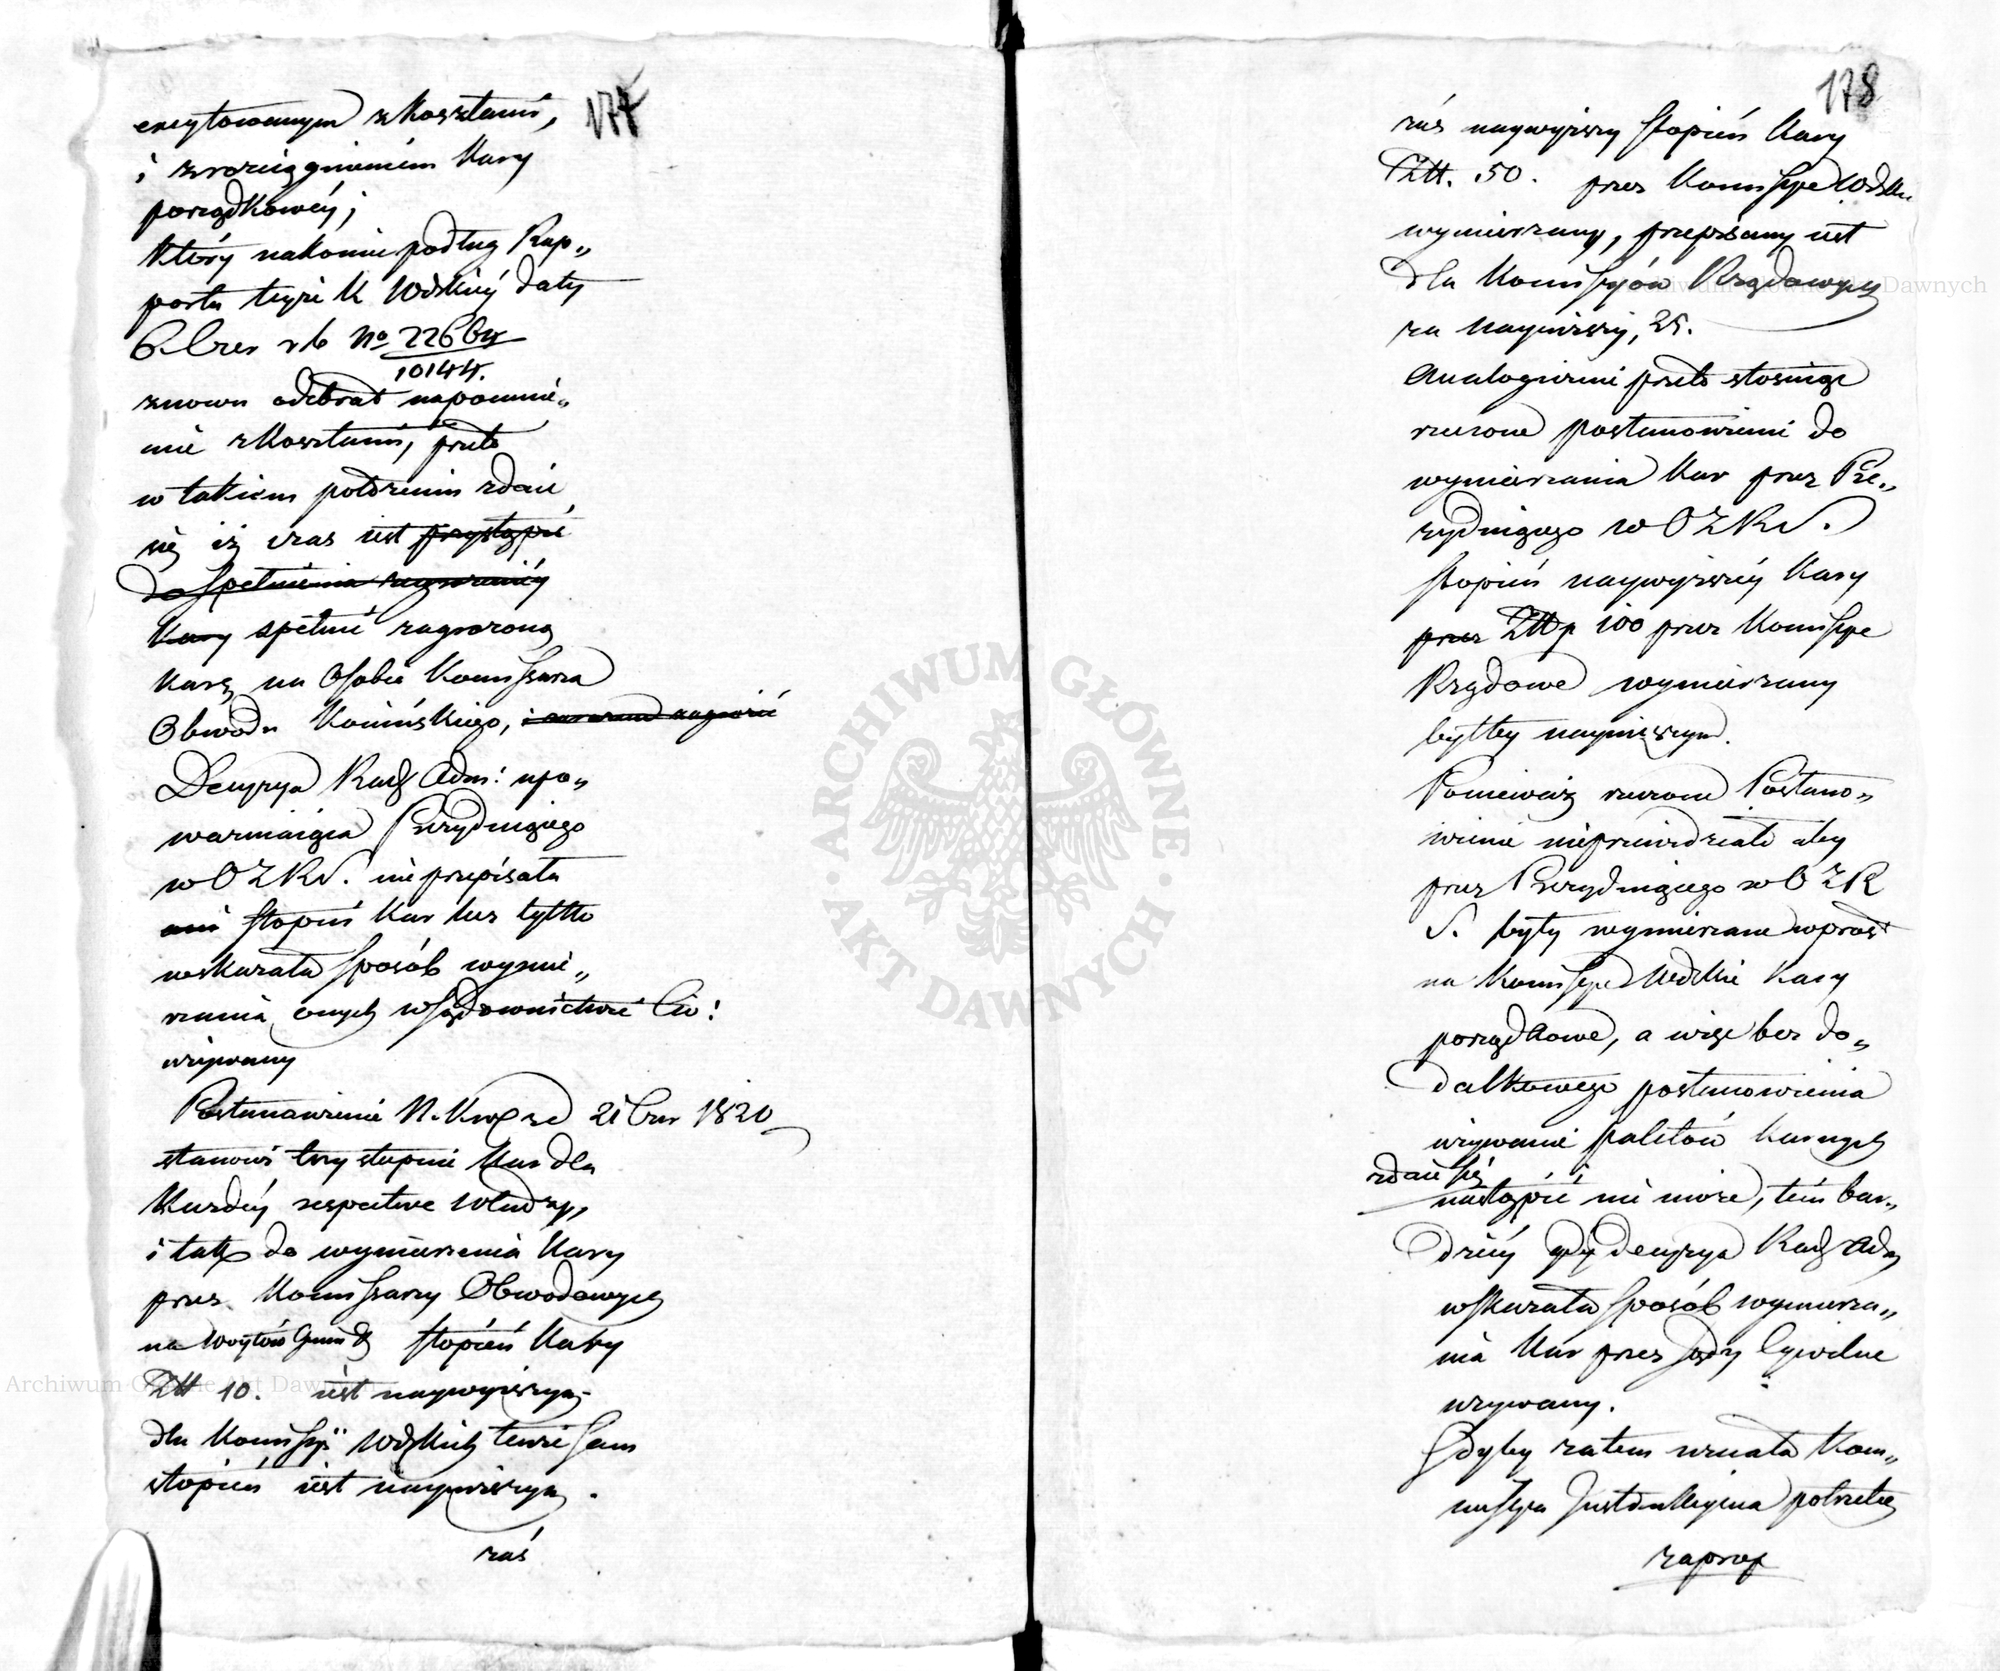 177
excytowanym z kosztami,
i zrozciągnieniem kary
porządkowéy;
Który nakoniec podług Rap„
portu teyże K Wdzkiéy daty
6. Czer r b No 22664/10144.
znowu odebrał napomnie„
nie z kosztami, przeto
w takiem położeniu zdaie
się iż czas iest przystąpić
do spełnienia zagrożonéy
Kary spełnić zagrożoną
karę na Osobie Kommissarza
Obwodu Konińskiego,
Decyzya Rady Adm: upo„
ważniaiąca Prezyduiącego
w O Z K S. nie przepisała
ani stopni kar lecz tylko
wskazała sposób wymie„
rzania onych w Sądownictwie Civ:
używany
Postanowienie N. Kxcia z d 21 1820
stanowi trzy stopnie kar dla
każdéy respective władzy,
i tak do wymierzenia kary
przez Kommissarzy Obwodowych
na Woytów Gmin stopień kary
Złł 10. iest naywyższym
dla Kommissyi Wdzkich tenże sam
stopień iest nayniższym.
zaś
178
zaś naywyższy stopień kary
Złł. 50. przez Kommissye Wdzkie
wymierzany, przepisany iest
dla Kommissyów Rządowych
za nayniższy, 25.
Analogicznie przeto stosuiąc
rzeczone postanowienie do
wymierzania kar przez Pre„
zyduiącego w O Z K S.
stopień naywyższéy kary
przez Złłp 100 przez Kommissye
Rządowe wymierzany
byłby nayniższym.
Ponieważ rzeczone Postano„
wienie nieprzewidziało aby
przez Prezyduiącego w O Z K
S. były wymierzane wprost
na Kommissye Wdzkie kary
porządkowe, a więc bez do„
datkowego postanowienia
używanie paletów karnych
zdaie się
nastąpić nie może, tém bar„
dziéy gdy decyzya Rady Adm
wskazała sposób wymierza„
nia kar przez Sądy Cywilne
używany.
Gdyby zatem uznała Kom„
missya Justyfikacyina potrzebę
zaprow